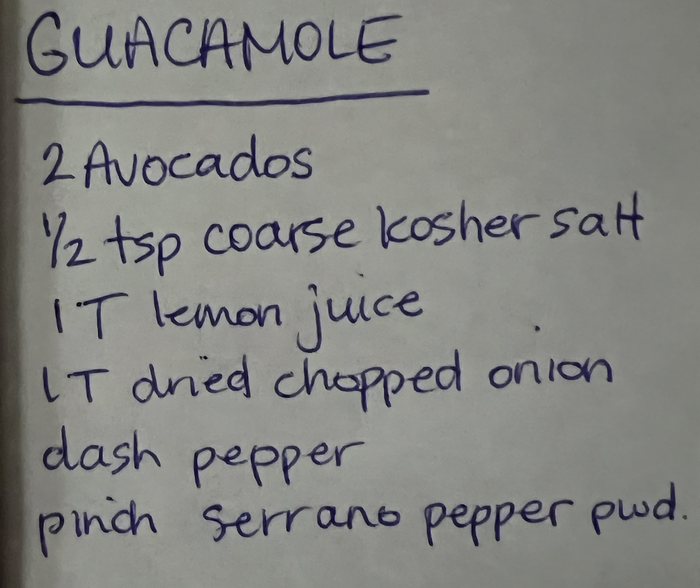 GUACAMOLE
2 Avocados
1/2 tsp coarse kosher salt
1 T lemon juice
1 T dried chopped onion
dash pepper
pinch serrano pepper pwd.